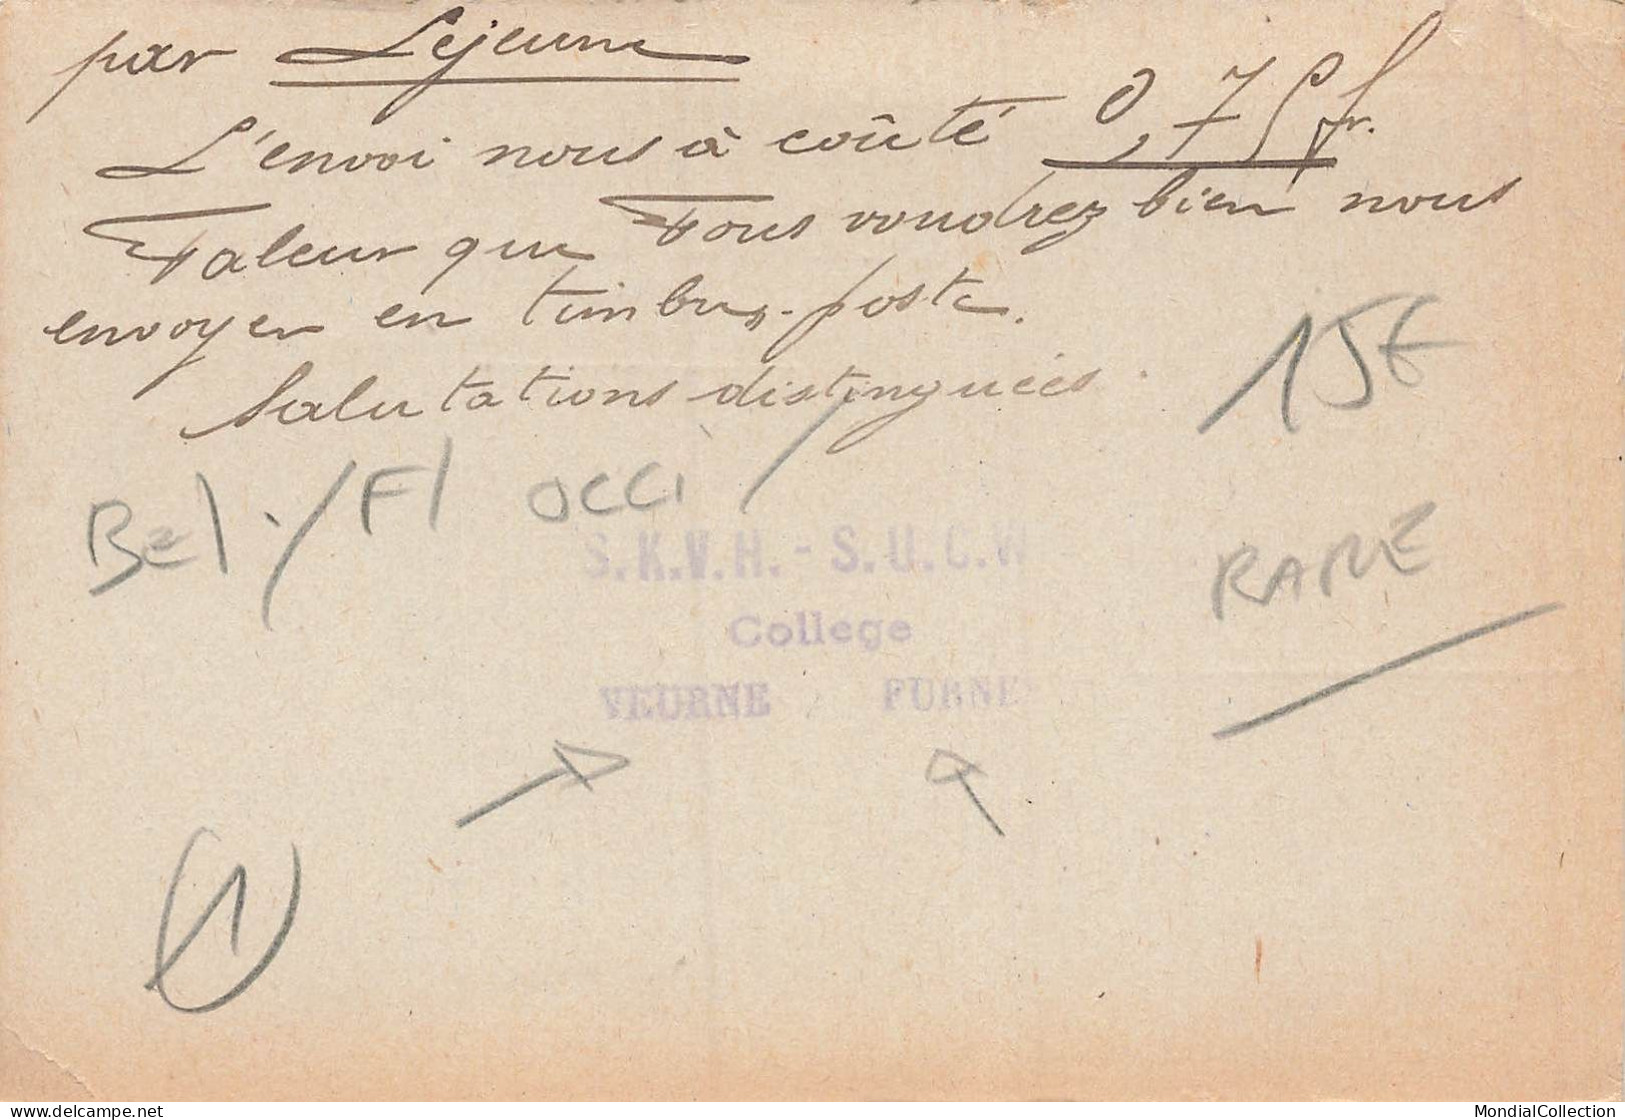 par Lejeune
L'envoi nous à coûté 0,75 fr.
Valeur que Vous voudrez bien nous
envoyer en timbres-poste.
Salutations distinguées.
15€
Bel./Fl occi/
S.K.V.H. - S.U.C.W
RARE
College
VEURNE FURNE
1
MondialCollection